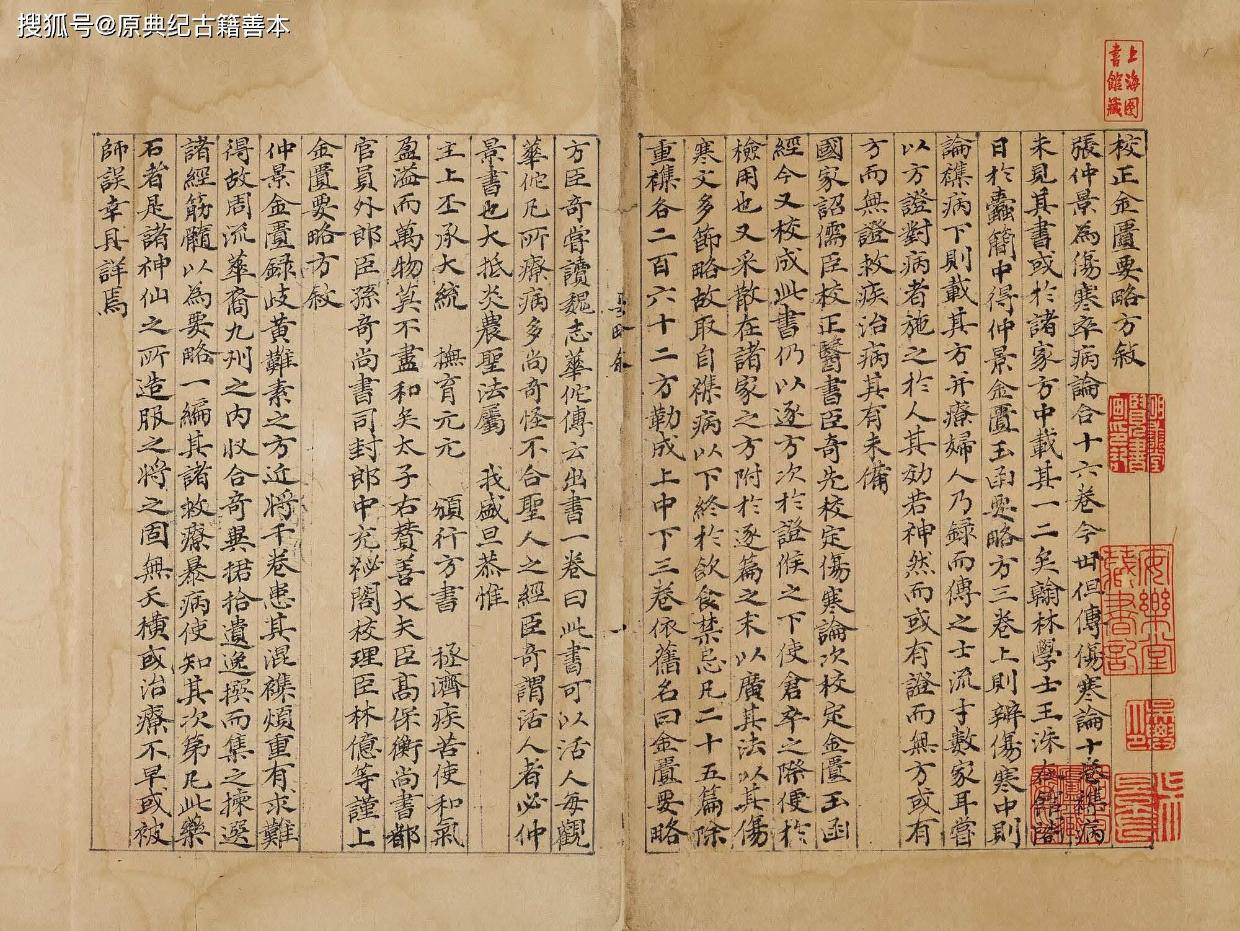 搜狐号@原典纪古籍善本
上海图
書館藏
校正金匱要略方敘
張仲景為傷寒卒病論合十六卷今世但傳傷寒論十卷雜病
未見其書或於諸家方中載其一二矣翰林學士王洙在館閣
日於蠹簡中得仲景金匱玉函要略方三卷上則辨傷寒中則
論雜病下則載其方并療婦人乃録而傳之士流才數家耳嘗
以方證對病者施之於人其効若神然而或有證而無方或有
方而無證救疾治病其有未備
國家詔儒臣校正醫書臣奇先校定傷寒論次校定金匱玉函
經今又校成此書仍以逐方次於證候之下使倉卒之際便於
檢用也又采散在諸家之方附於逐篇之末以廣其法以其傷
寒文多節略故取自雜病以下終於飲食禁忌凡二十五篇除
重複各二百六十二方勒成上中下三卷依舊名曰金匱要略
方臣奇嘗讀魏志華佗傳云出書一卷曰此書可以活人每觀
華佗凡所療病多尚奇怪不合聖人之經臣奇謂活人者必仲
景書也大抵炎農聖法屬 我盛旦恭惟
主上丕承大統 撫育元元 頒行方書 拯濟疾苦使和氣
盈溢而萬物莫不盡和矣太子右賛善大夫臣髙保衡尚書都
官員外郎臣孫奇尚書司封郎中充祕閣校理臣林億等謹上
金匱要略方敘
仲景金匱録岐黃難素之方近將千卷患其混雜煩重有求難
得故周流華裔九州之内収合奇異捃拾遺逸撰而集之揀選
諸經筋髓以為要略一編其諸救療暴病使知其次第凡此藥
石者是諸神仙之所造服之將之固無夭橫或治療不早或被
師誤幸具詳焉
安樂堂
藏書記